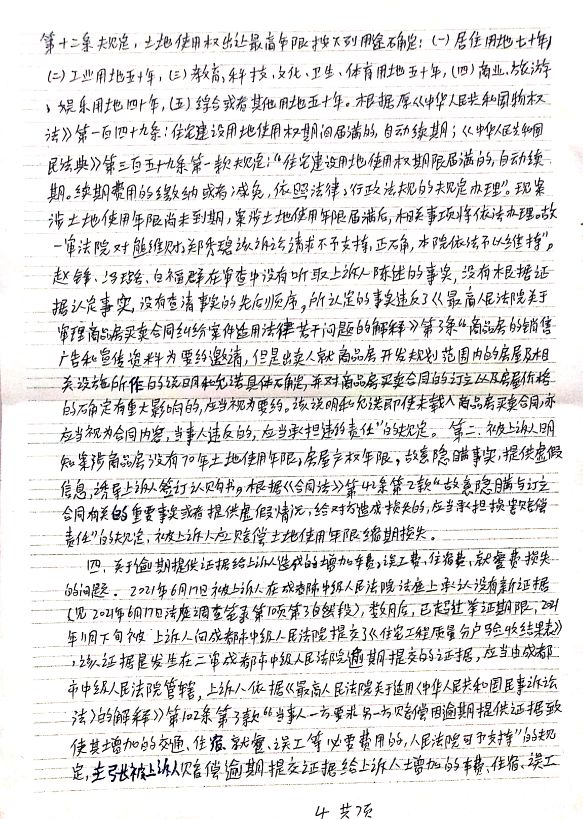 第十二条规定,土地使用权出让最高年限按下列用途确定:(一)居住用地七十年;
(二)工业用地五十年,(三)教育、科技、文化、卫生、体育用地五十年,(四)商业、旅游
、娱乐用地四十年,(五)综合或者其他用地五十年。根据原《中华人民共和国物权
法》第一百四十九条:住宅建设用地使用权期间届满的,自动续期;《中华人民共和国
民法典》第三百五十九条第一款规定:“住宅建设用地使用权期限届满的,自动续
期。续期费用的缴纳或者减免,依照法律、行政法规的规定办理”。现案
涉土地使用年限尚未到期,案涉土地使用年限届满后,相关事项将依法办理。故
一审法院对熊维财、郑秀碧该诉讼请求不予支持,正确,本院依法予以维持”。
赵锋、冯璐、白福群在审查中没有听取上诉人陈述的事实,没有根据证
据认定事实,没有查清事实的先后顺序,所认定的事实违反了《最高人民法院关于
审理商品房买卖合同纠纷案件适用法律若干问题的解释》第3条“商品房的销售
广告和宣传资料为要约邀请,但是出卖人就商品房开发规划范围内的房屋及相
关设施所作的说明和允诺具体确定,并对商品房买卖合同的订立以及房屋价格
的确定有重大影响的,应当视为要约。该说明和允诺即使未载入商品房买卖合同,亦
应当视为合同内容,当事人违反的,应当承担违约责任”的规定。第二、被上诉人明
知案涉商品房没有70年土地使用年限,房屋产权年限,故意隐瞒事实,提供虚假
信息,诱导上诉人签订认购书,根据《合同法》第42条第2款“故意隐瞒与订立
合同有关的重要事实或者提供虚假情况,给对方造成损失的,应当承担损害赔偿
责任”的规定,被上诉人应赔偿土地使用年限缩期损失。
四、关于逾期提供证据给上诉人造成的增加车费、误工费、住宿费、就餐费损失
的问题。2021年6月17日被上诉人在成都市中级人民法院法庭上承认没有新证据
(见2021年6月17日法庭调查笔录第10页第3自然段),数月后,已超过举证期限,2021
年11月下旬被上诉人向成都市中级人民法院提交了《住宅工程质量分户验收结果表》
,该证据是发生在二审成都市中级人民法院逾期提交的证据,应当由成都
市中级人民法院管辖,上诉人依据《最高人民法院关于适用〈中华人民共和国民事诉讼
法〉的解释》第102条第3款“当事人一方要求另一方赔偿因逾期提供证据致
使其增加的交通、住宿、就餐、误工等必要费用的,人民法院可予支持”的规
定,主张被上诉人赔偿逾期提交证据给上诉人增加的车费、住宿、误工
4 共7页